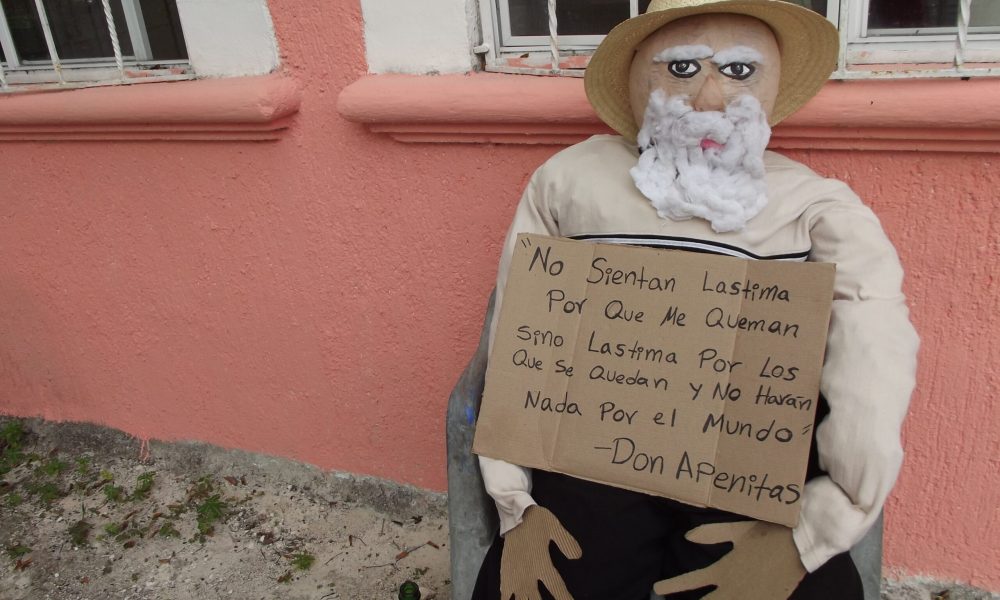 "No Sientan Lastima
Por Que Me Queman
Sino Lastima Por Los
Que Se Quedan y No Haran
Nada Por el Mundo"
-Don Apenitas